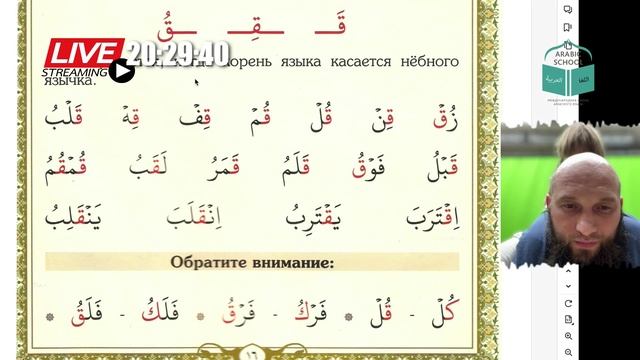 قَـ ـقِـ ـقُ
LIVE 20:29:40
STREAMING
корень языка касается нёбного
язычка.
ARABIC
SCHOOL
اللغة العربية
زُقْ قِنْ قُلْ قُمْ قِفْ قِهْ قَلْبُ
قَبْلُ فَوْقُ قَلَمُ قَمَرُ لَقَبُ قُمْقُمُ
اِقْتَرَبَ يَقْتَرِبُ اِنْقَلَبَ يَنْقَلِبُ
Обратите внимание:
كُلْ - قُلْ * فَرْكُ - فَرْقُ * فَلَكُ - فَلَقُ *
١٦